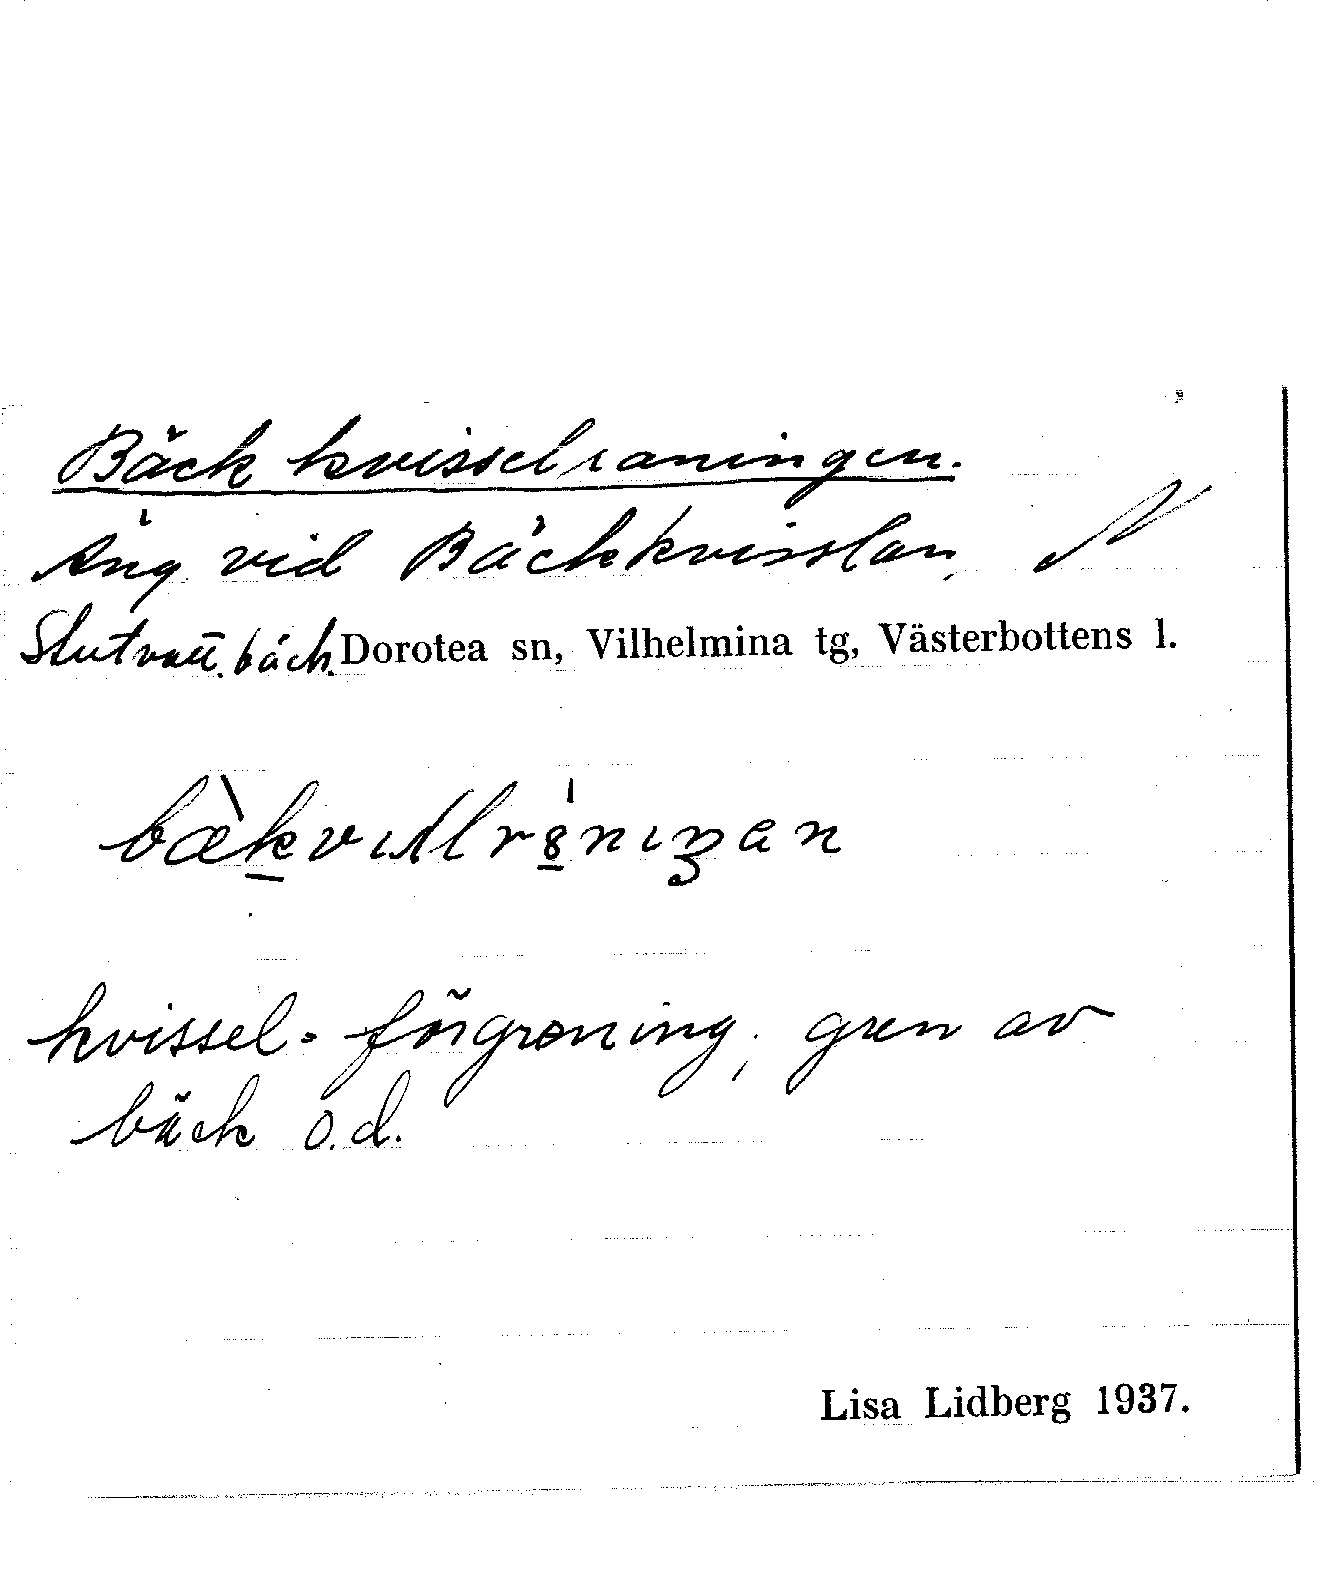 Bäckkvisselraningen.
Äng vid Bäckkvisslan, N
Slutvatt. bäck. Dorotea sn, Vilhelmina tg, Västerbottens l.
kvissel = förgrening, gren av
bäck o.d.
Lisa Lidberg 1937.